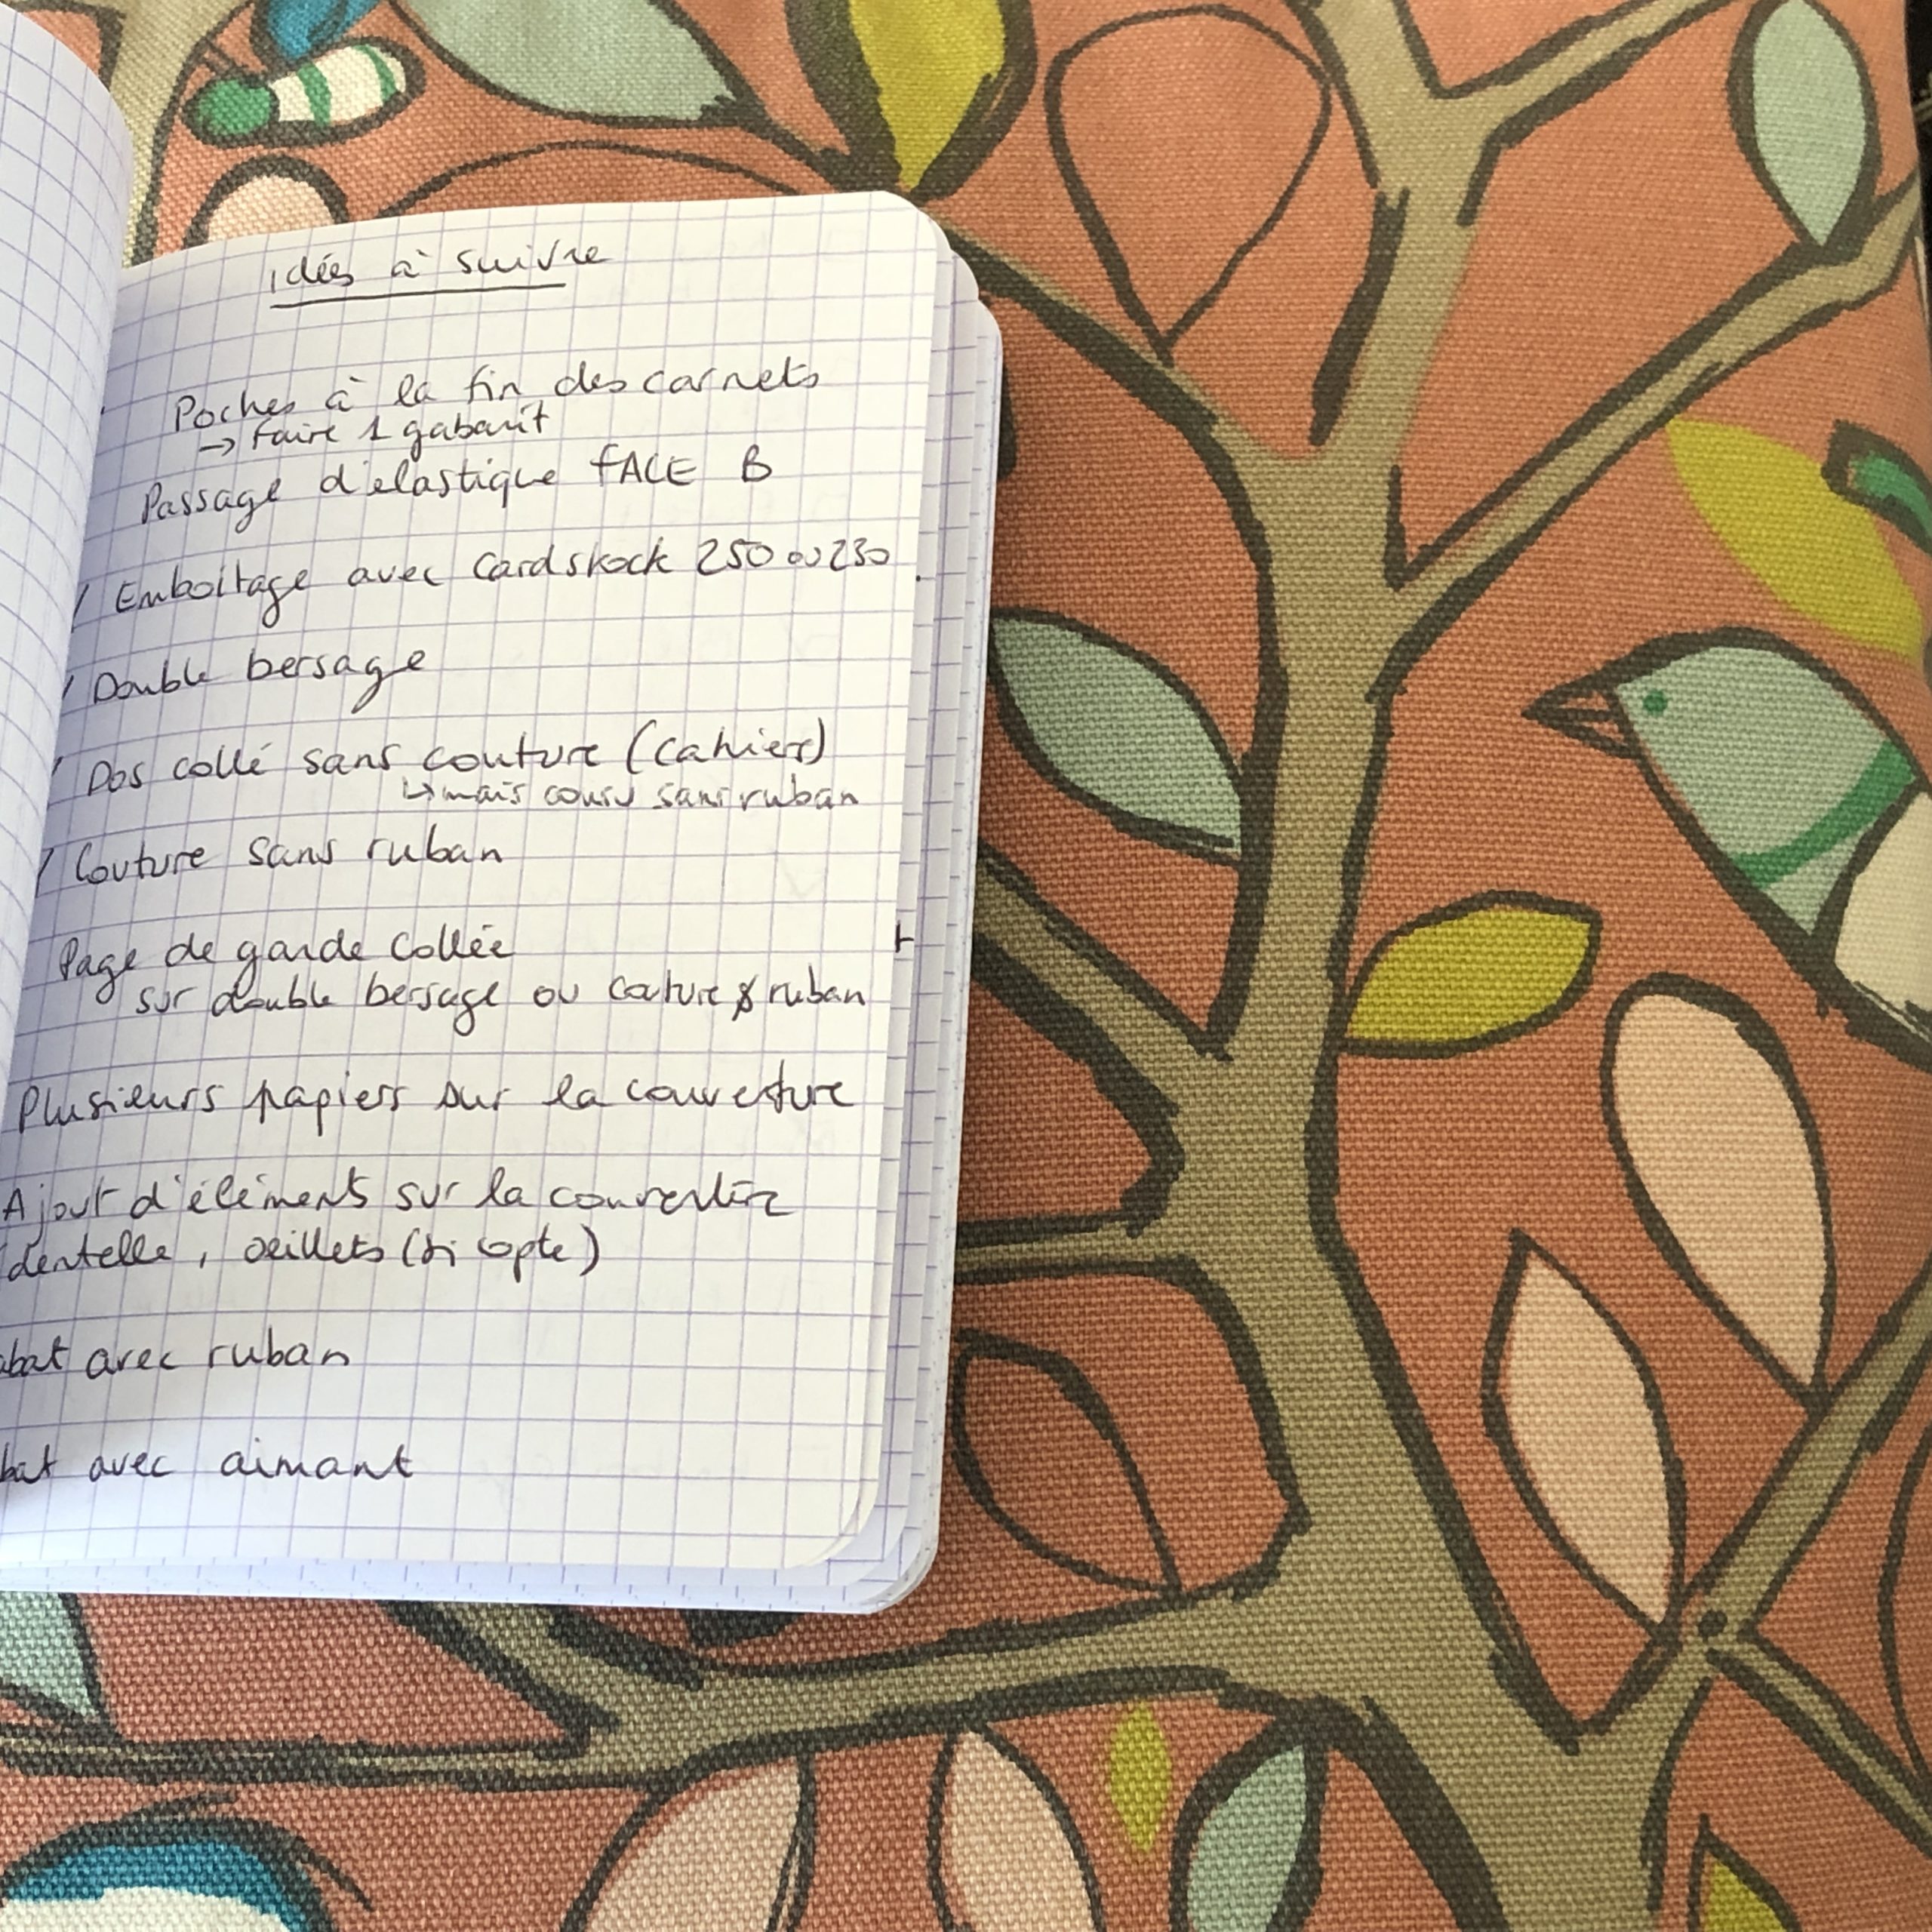 idées à suivre
Poches à la fin des carnets
→ Faire 1 gabarit
Passage d'élastique FACE B
/ Emboitage avec Cardskock 250 ou 230
/ Double bersage
/ Dos collé sans couture (Cahier)
↳ mais cousu sans ruban
/ Couture sans ruban
Page de garde Collée
sur double bersage ou couture & ruban
Plusieurs papiers sur la couverture
Ajout d'éléments sur la couverture
dentelle, œillets (si copte)
abat avec ruban
bat avec aimant